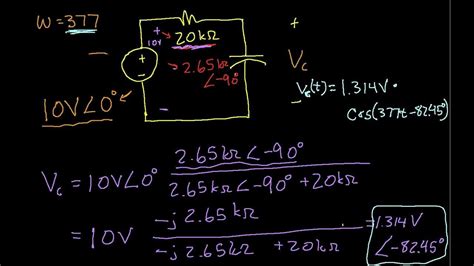 ω = 377
+
10V
20kΩ
+
+
-
2.65kΩ
∠-90°
V_c
10V∠0°
-
-
V_c(t)=1.314V·
Cos(377t-82.45°)
V_c = 10V∠0° 2.65kΩ∠-90°
2.65kΩ∠-90°+20kΩ
= 10V -j2.65kΩ
-j2.65kΩ +20kΩ
=1.314V
∠-82.45°